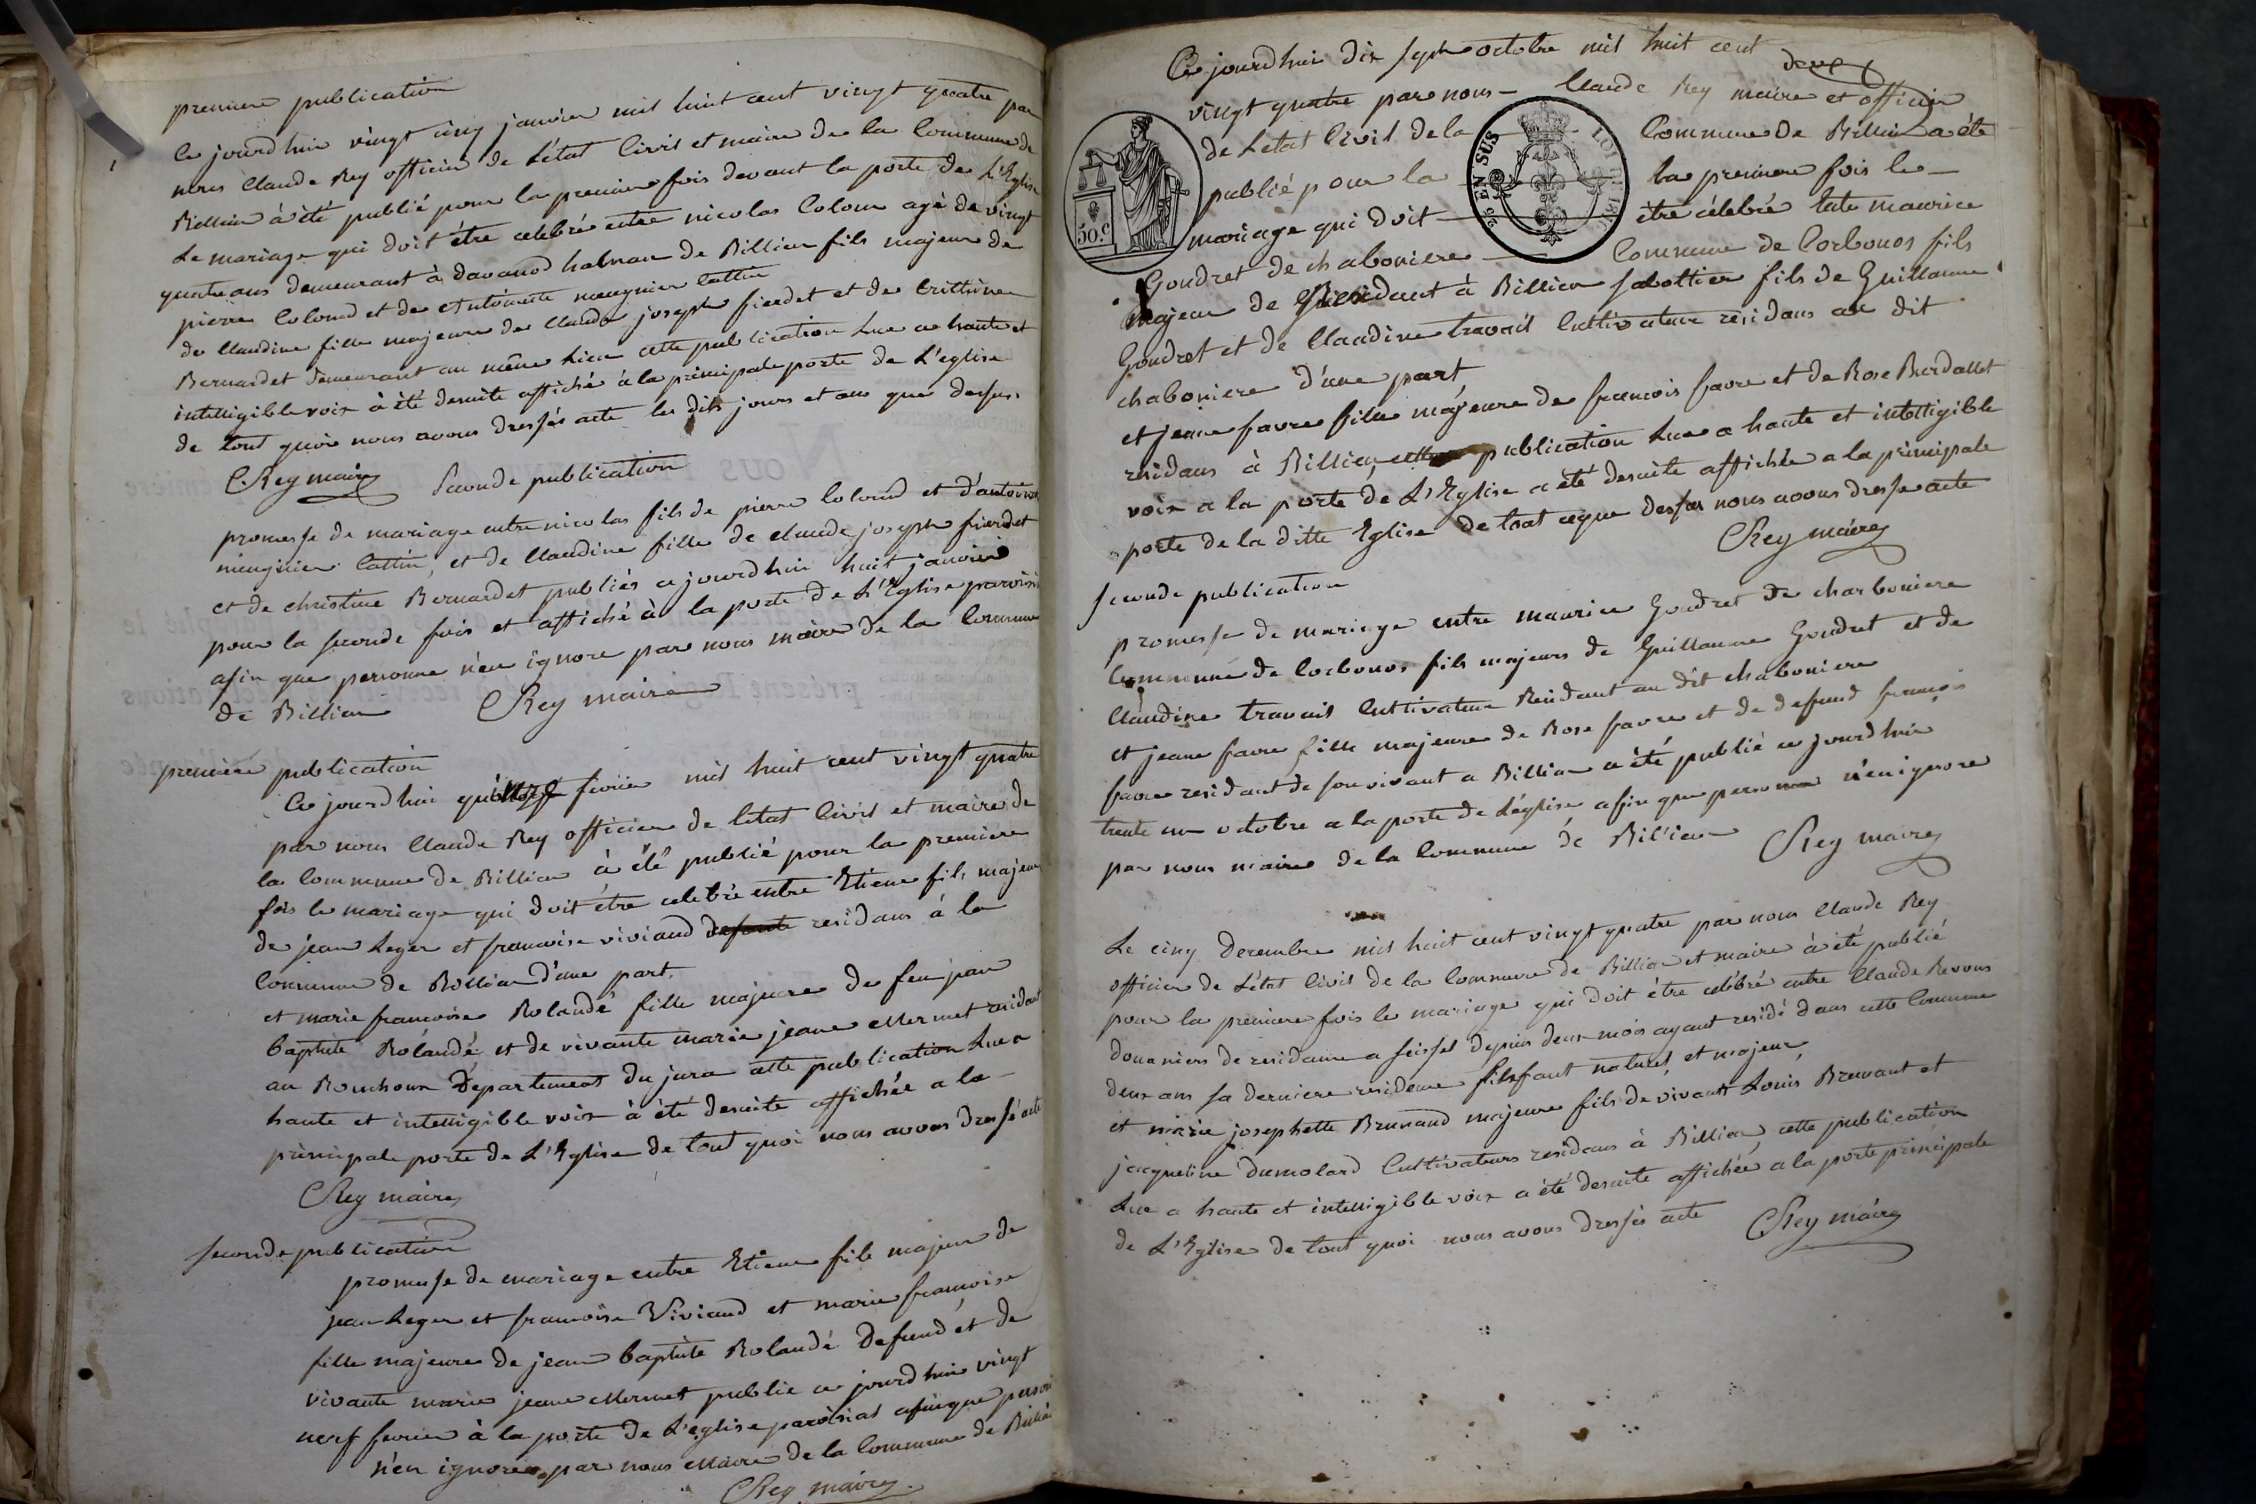 premiere publication
Ce jourd'hui vingt cinq janvier mil huit cent vingt quatre par
nous Claude Rey officier de L'état Civil et maire de la Commune de
Billieu à été publié pour la premiere fois devant la porte de L'Eglise
Le mariage qui doit être celebré entre nicolas Coloud agé de vingt
quatre ans demeurant à davanod hameau de Billieu fils majeur de
pierre Coloud et de Antoinette meugnier Cattin
de Claudine fille majeure de Claude joseph fierdet et de Cristine
Bernardet demeurant au même Lieu cette publication Lue a haute et
intelligible voix à été desuite affiché à la principale porte de L'eglise
de tout quoi nous avons dressés acte les dits jours et an que dessus
CRey maire
Seconde publication
promesse de mariage entre nicolas fils de pierre Coloud et d'antoinette
meugnier Cattin, et de Claudine fille de claude joseph fierdet
et de christine Bernardet publiés ce jourd'hui huit janvier
pour la seconde fois et affiché à la porte de L'Eglise paroissi
afin que personne n'en ignore par nous maire de la Commune
de Billieu CRey maire
premiere publication
Ce jourd'hui quinze fevrier mil huit cent vingt quatre
par nous Claude Rey officier de letat Civil et maire de
la Commune de Billieu à été publié pour la premiere
fois le mariage qui doit être celebré entre Etiene fils majeur
de jean Leger et francoise viviand defunte residans à la
Commune de Billieu d'une part.
et marie francoise Rolandé fille majeure de feu jean
baptiste Rolandé et de vivante marie jeane Mermet residant
au Bouchoux Departement du jura cette publication Lue a
haute et intelligible voix à été desuite affichée a la
principale porte de L'Eglise de tout quoi nous avons dressé acte
CRey maire
Seconde publication
promesse de mariage entre Etiene fils majeur de
jean Leger et francoise Viviand et marie francoise
fille majeure de jean baptiste Rolandé defund et de
vivante marie jeane Mermet publié ce jourd'hui vingt
neuf fevrier à la porte de L'eglise paroisial afin que person
n'en ignore par nous Maire de la Commune de Billieu
CRey maire
Ce jourd'hui dix sept octobre mil huit cent
vingt quatre par nous Claude Rey maire et officier
de Letat Civil de la Commune de Billieu a été
publié pour la premiere fois le
mariage qui doit être célebré entre maurice
Goudret de chaboniere Commune de Corbonos fils
majeur de Residant à Billieu sabottier fils de Guillaume
Goudret et de Claudine travail Cultivateur residans au dit
chaboniere d'une part
et jeane favre fille majeure de francois favre et de Rose Burdallet
residans à Billieu cette publication Lue a haute et intelligible
voix a la porte de L'Eglise a été desuite affichée a la principale
porte de la ditte Eglise de tout ce que dessus nous avons dresse acte
CRey maire
50.c
EN SUS
LOI DE 1816
Seconde publication
promesse de mariage entre maurice Goudret de charboniere
Commune de Corbonos fils majeurs de Guillaume Goudret et de
Claudine travail Cultivateur Residant au dit chaboniere
et jeane favre fille majeure de Rose favre et de defund francois
favre residant de son vivant a Billieu a été publié ce jourd'hui
trente un octobre a la porte de L'église afin que personne n'en ignore
par nous maire de la Commune de Billieu CRey maire
Le cinq Decembre mil huit cent vingt quatre par nous Claude Rey
officier de L'état Civil de la Commune de Billieu et maire à été publié
pour la premiere fois le mariage qui doit être célébré entre Claude Revoux
douaniers de residance a seissel depuis deux mois ayant residé dans cette Commune
deux ans sa derniere residence naturel et majeur
et marie josephette Brunand majeure fils de vivants Louis Brunant et
jacqueline dumolard Cultivateurs residans à Billieu, cette publication
Lue a haute et intelligible voix a été desuite affichée a la porte principale
de L'Eglise de tout quoi nous avons dressés acte CRey maire